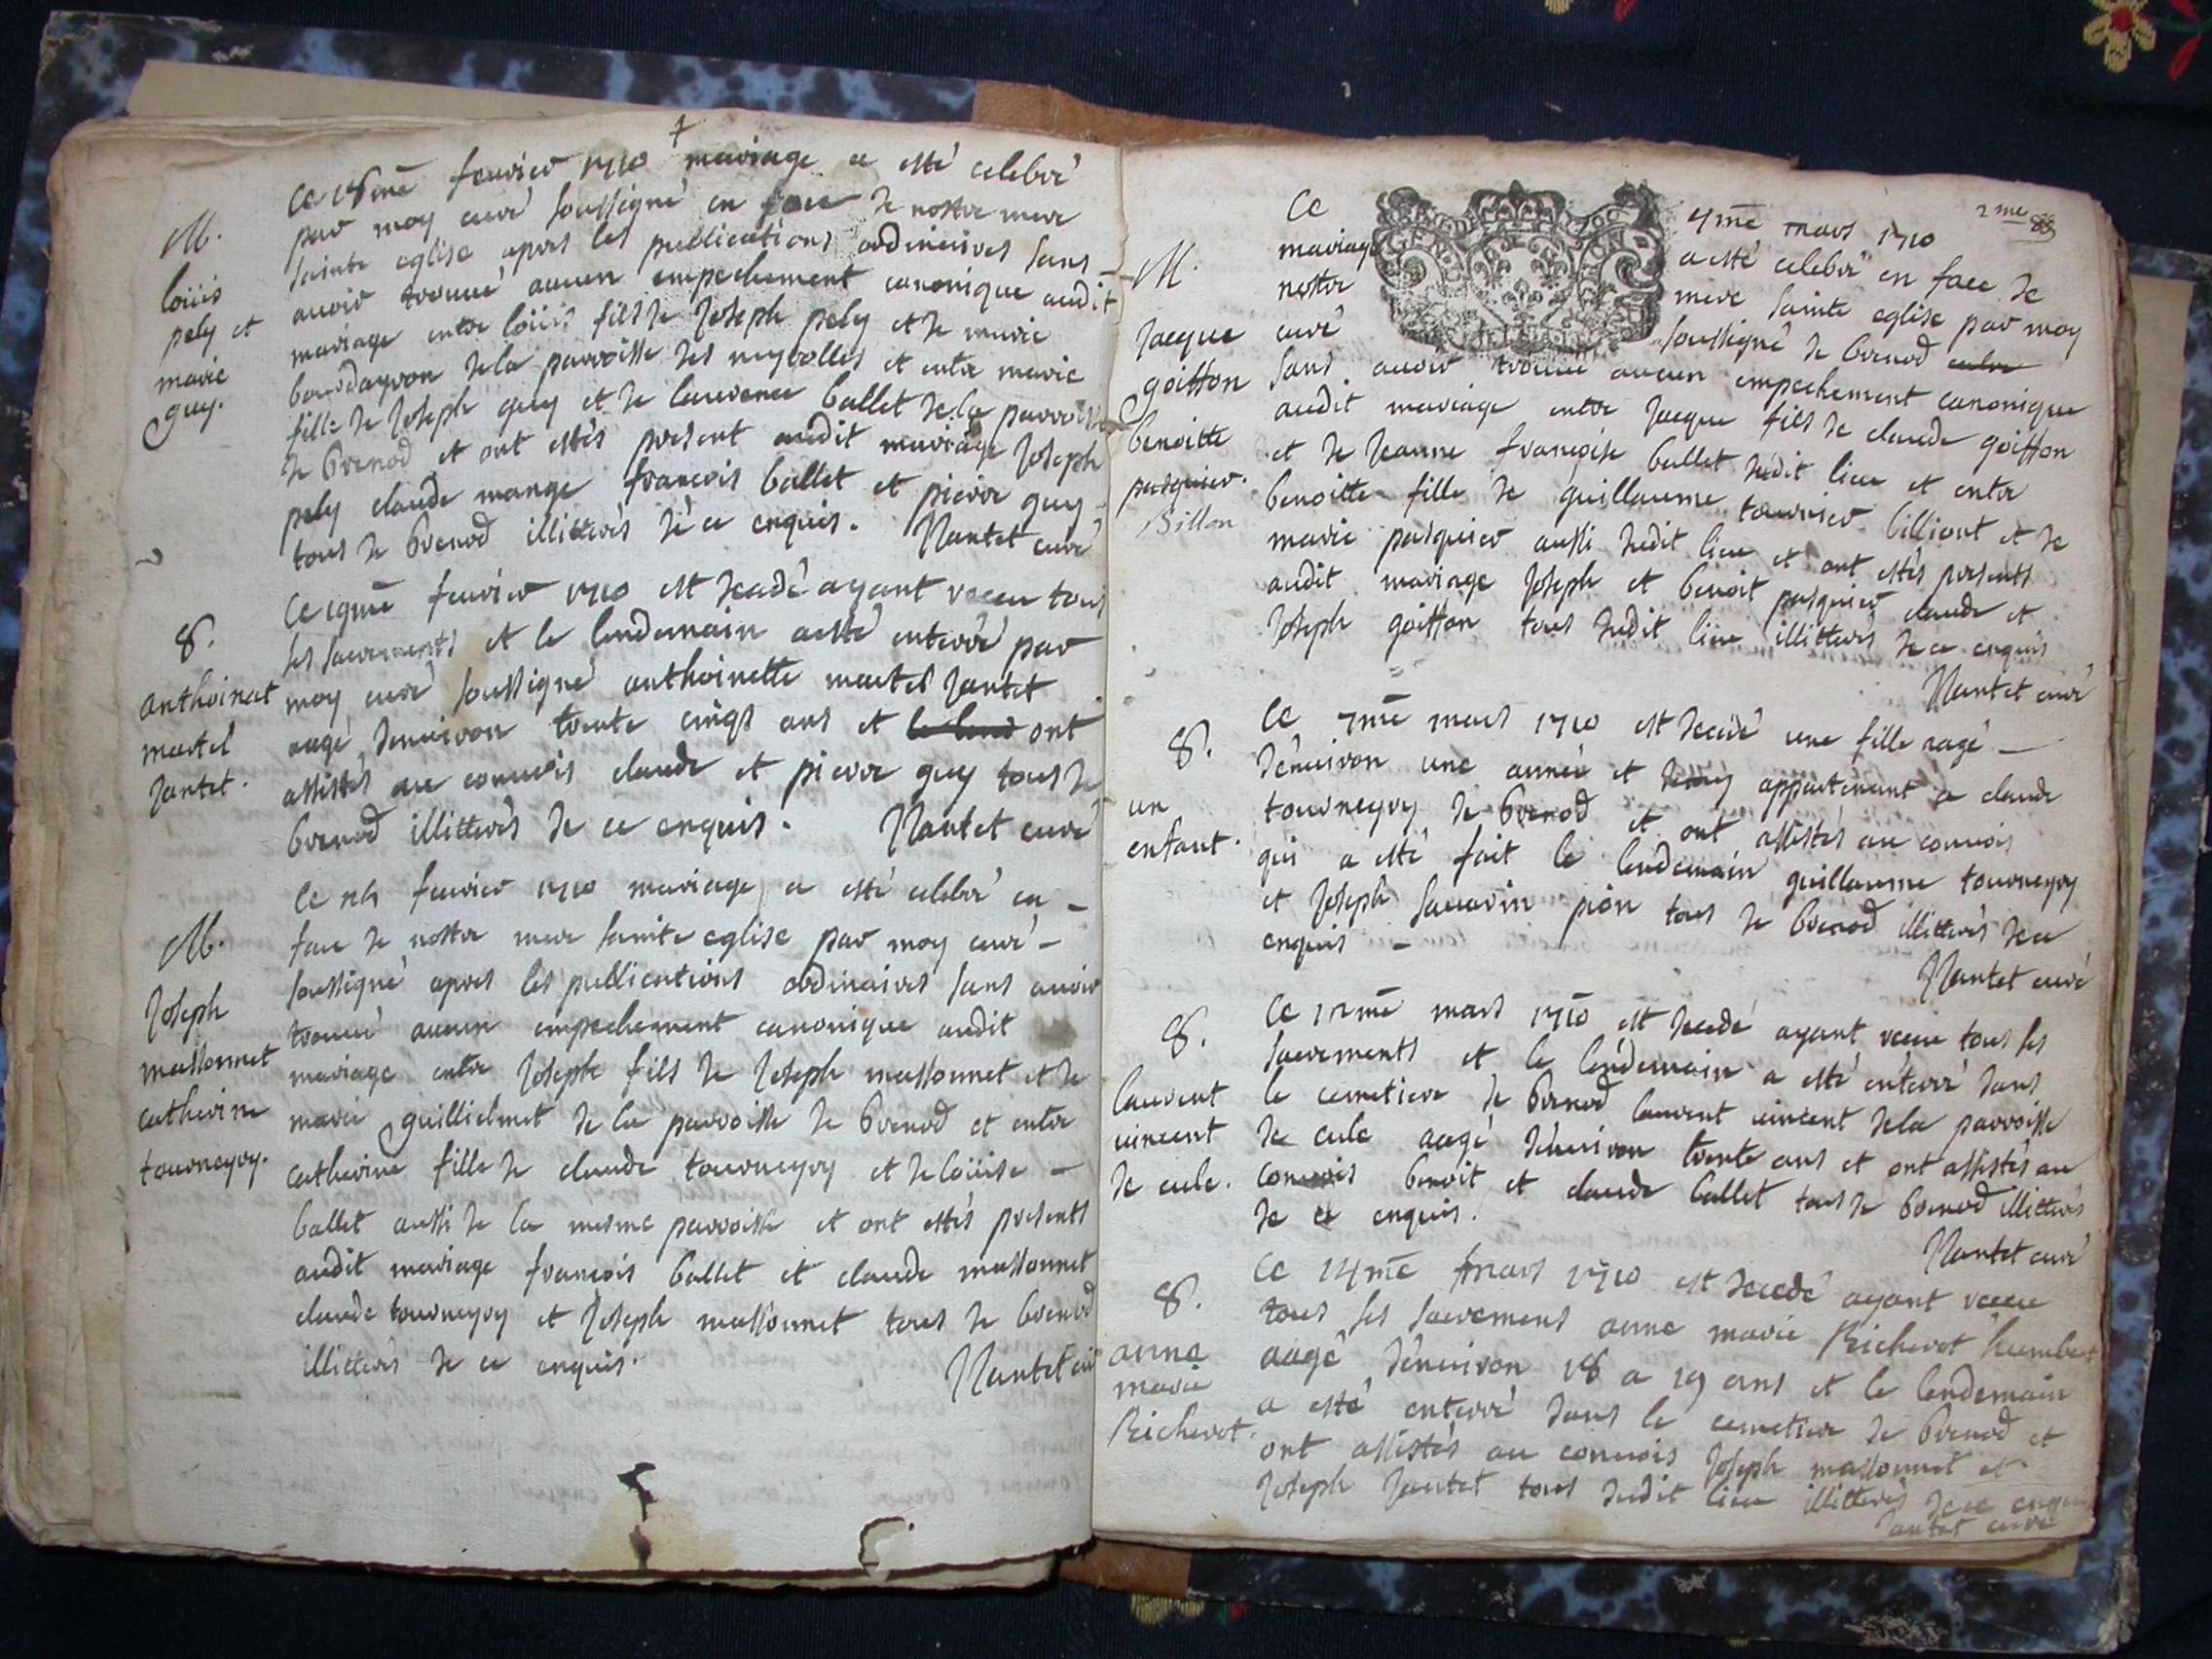 M.
loüis
pely et
marie
guy.
Ce 18me feuvier 1710 mariage a esté celebré
par moy curé soussigné en face de nostre mere
sainte eglise apres les publications ordinaires sans
avoir trouué aucun empechement canonique audit
mariage entre loüis fils de Joseph pely et de marie
de la parroisse des neyrolles et entre marie
fille de Joseph guy et de laurence ballet de la parroisse
de brenod et ont estés present audit mariage Joseph
pely claude mange francois ballet et pierre guy
tous de brenod illitterés de ce enquis. Nantet curé
8.
anthoinet
martel
Jantet.
Ce feuvier 1710 est decadé ayant receu tous
ses sacrements et le lendemain a esté enterré par
moy curé soussigné anthoinette martel Jantet
aagé denuiron trente cinqs ans et le lend ont
assistés au conuois claude et pierre guy tous de
brenod illitterés de ce enquis. Nantet curé
M.
Joseph
massonnet
catherine
tourneyry.
Ce feuvier 1710 mariage a esté celebré en
face de nostre mere sainte eglise par moy curé
soussigné apres les publications ordinaires sans avoir
trouué aucun empechement canonique audit
mariage entre Joseph fils de Joseph massonnet et de
marie guillielmet de la parroisse de brenod et entre
catherine fille de claude tourneyry et de loüise
ballet aussi de la mesme parroisse et ont estés presents
audit mariage francois ballet et claude massonnet
claude tourneyry et Joseph massonnet tous de brenod
illitterés de ce enquis. Nantet curé
2me
GEN.
M.
Jacque
goiffon
benoitte
pasquier.
Billon
Ce 4me mars 1710
mariage a esté celebré en face de
nostre mere sainte eglise par moy
curé soussigné de brenod entre
sans auoir trouué aucun empechement canonique
audit mariage entre Jacque fils de claude goiffon
et de Jeanne francoise ballet dudit lieu et entre
benoitte fille de guillaume tournier billiont et de
marie pasquier aussi dudit lieu et ont estés presents
audit mariage Joseph et benoit pasquier claude et
Joseph goiffon tous dudit lieu illitterés de ce enquis
Nantet curé
8.
un
enfant.
Ce 7me mars 1710 est decedé une fille aagé
d'enuiron une année et demy appartenant a claude
tourneyry de brenod et ont assistés au conuois
qui a esté fait le lendemain guillaume tourneyry
et Joseph sauarin pion tous de brenod illitterés de ce
enquis
Nantet curé
8.
laurent
uincent
de cule.
Ce 12me mars 1710 est decedé ayant receu tous ses
sacrements et le lendemain a esté enterré dans
le cemetiere de brenod laurent uincent de la parroisse
de cule aagé d'enuiron trente ans et ont assistés au
conuois benoit et claude ballet tous de brenod illitterés
de ce enquis.
Nantet curé
8.
anne
marie
Richerot.
Ce 14me mars 1710 est decedé ayant receu
tous ses sacrements anne marie Richerot humbert
aagé d'enuiron 18 a 19 ans et le lendemain
a esté enterré dans le cemetiere de brenod et
ont assistés au conuois Joseph massonnet et
Joseph Jantet tous dudit lieu illitterés de ce enquis
Nantet curé